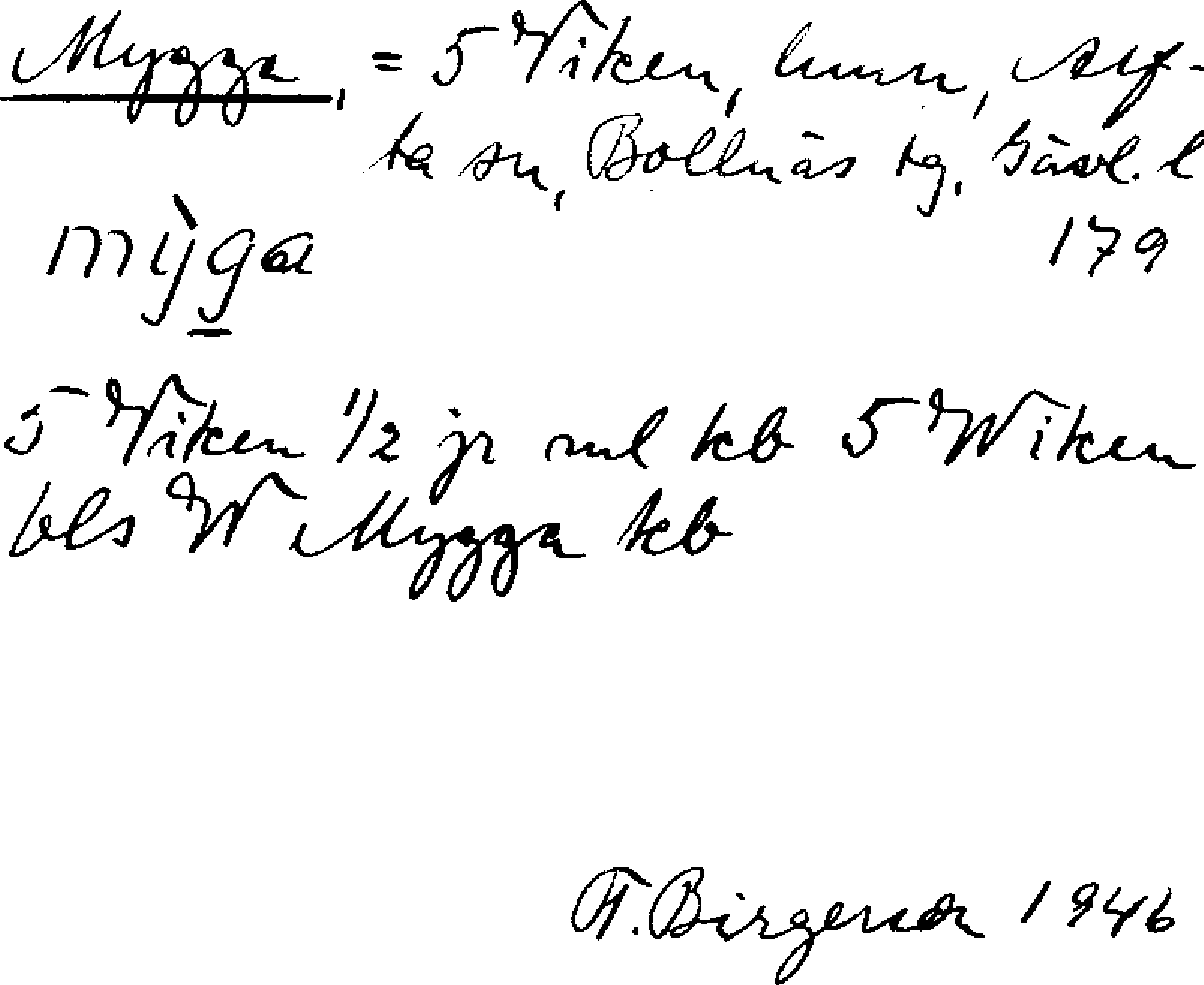 Mygga, = 5 Viken, hmn, Alf-
ta sn, Bollnäs tg, Gävl. l
mỳga
179
5 Viken 1/2 jr ml kb 5 Wiken
bls W Mygga kb
F. Birgerson 1946